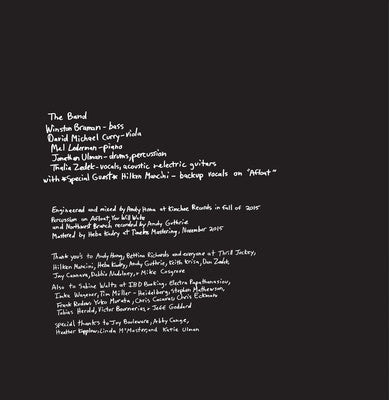 The Band
Winston Braman - bass
David Michael Curry - viola
Mel Lederman - piano
Jonathan Ulman - drums, percussion
Thalia Zedek - vocals, acoustic + electric guitars
with *Special Guest* Hilken Mancini - backup vocals on "Afloat"
Engineered and mixed by Andy Hong at Kimchee Records in Fall of 2015
Percussion on Afloat, You Will Wake
and Northwest Branch recorded by Andy Guthrie
Mastered by Heba Kadry at Timeless Mastering, November 2015
Thank you's to Andy Hong, Bettina Richards and everyone at Thrill Jockey,
Hilken Mancini, Heba Kadry, Andy Guthrie, Keith Krisa, Dan Zedek,
Jay Cannava, Debbie Nadolney, + Mike Cosgrove
Also to Sabine Waltz at IBD Booking, Electra Papathanasiou,
Imke Wagener, Tim Möller - Heidelberg, Stephen Mathewson,
Frank Rodaro Yoko Murata, Chris Cacavas Chris Eckman
Tobias Herold, Victor Bournerias, + Jeff Goddard
special thanks to Joy Bouleware, Abby Cange,
Heather Kapplow, Linda McMaster, and Katie Ulman